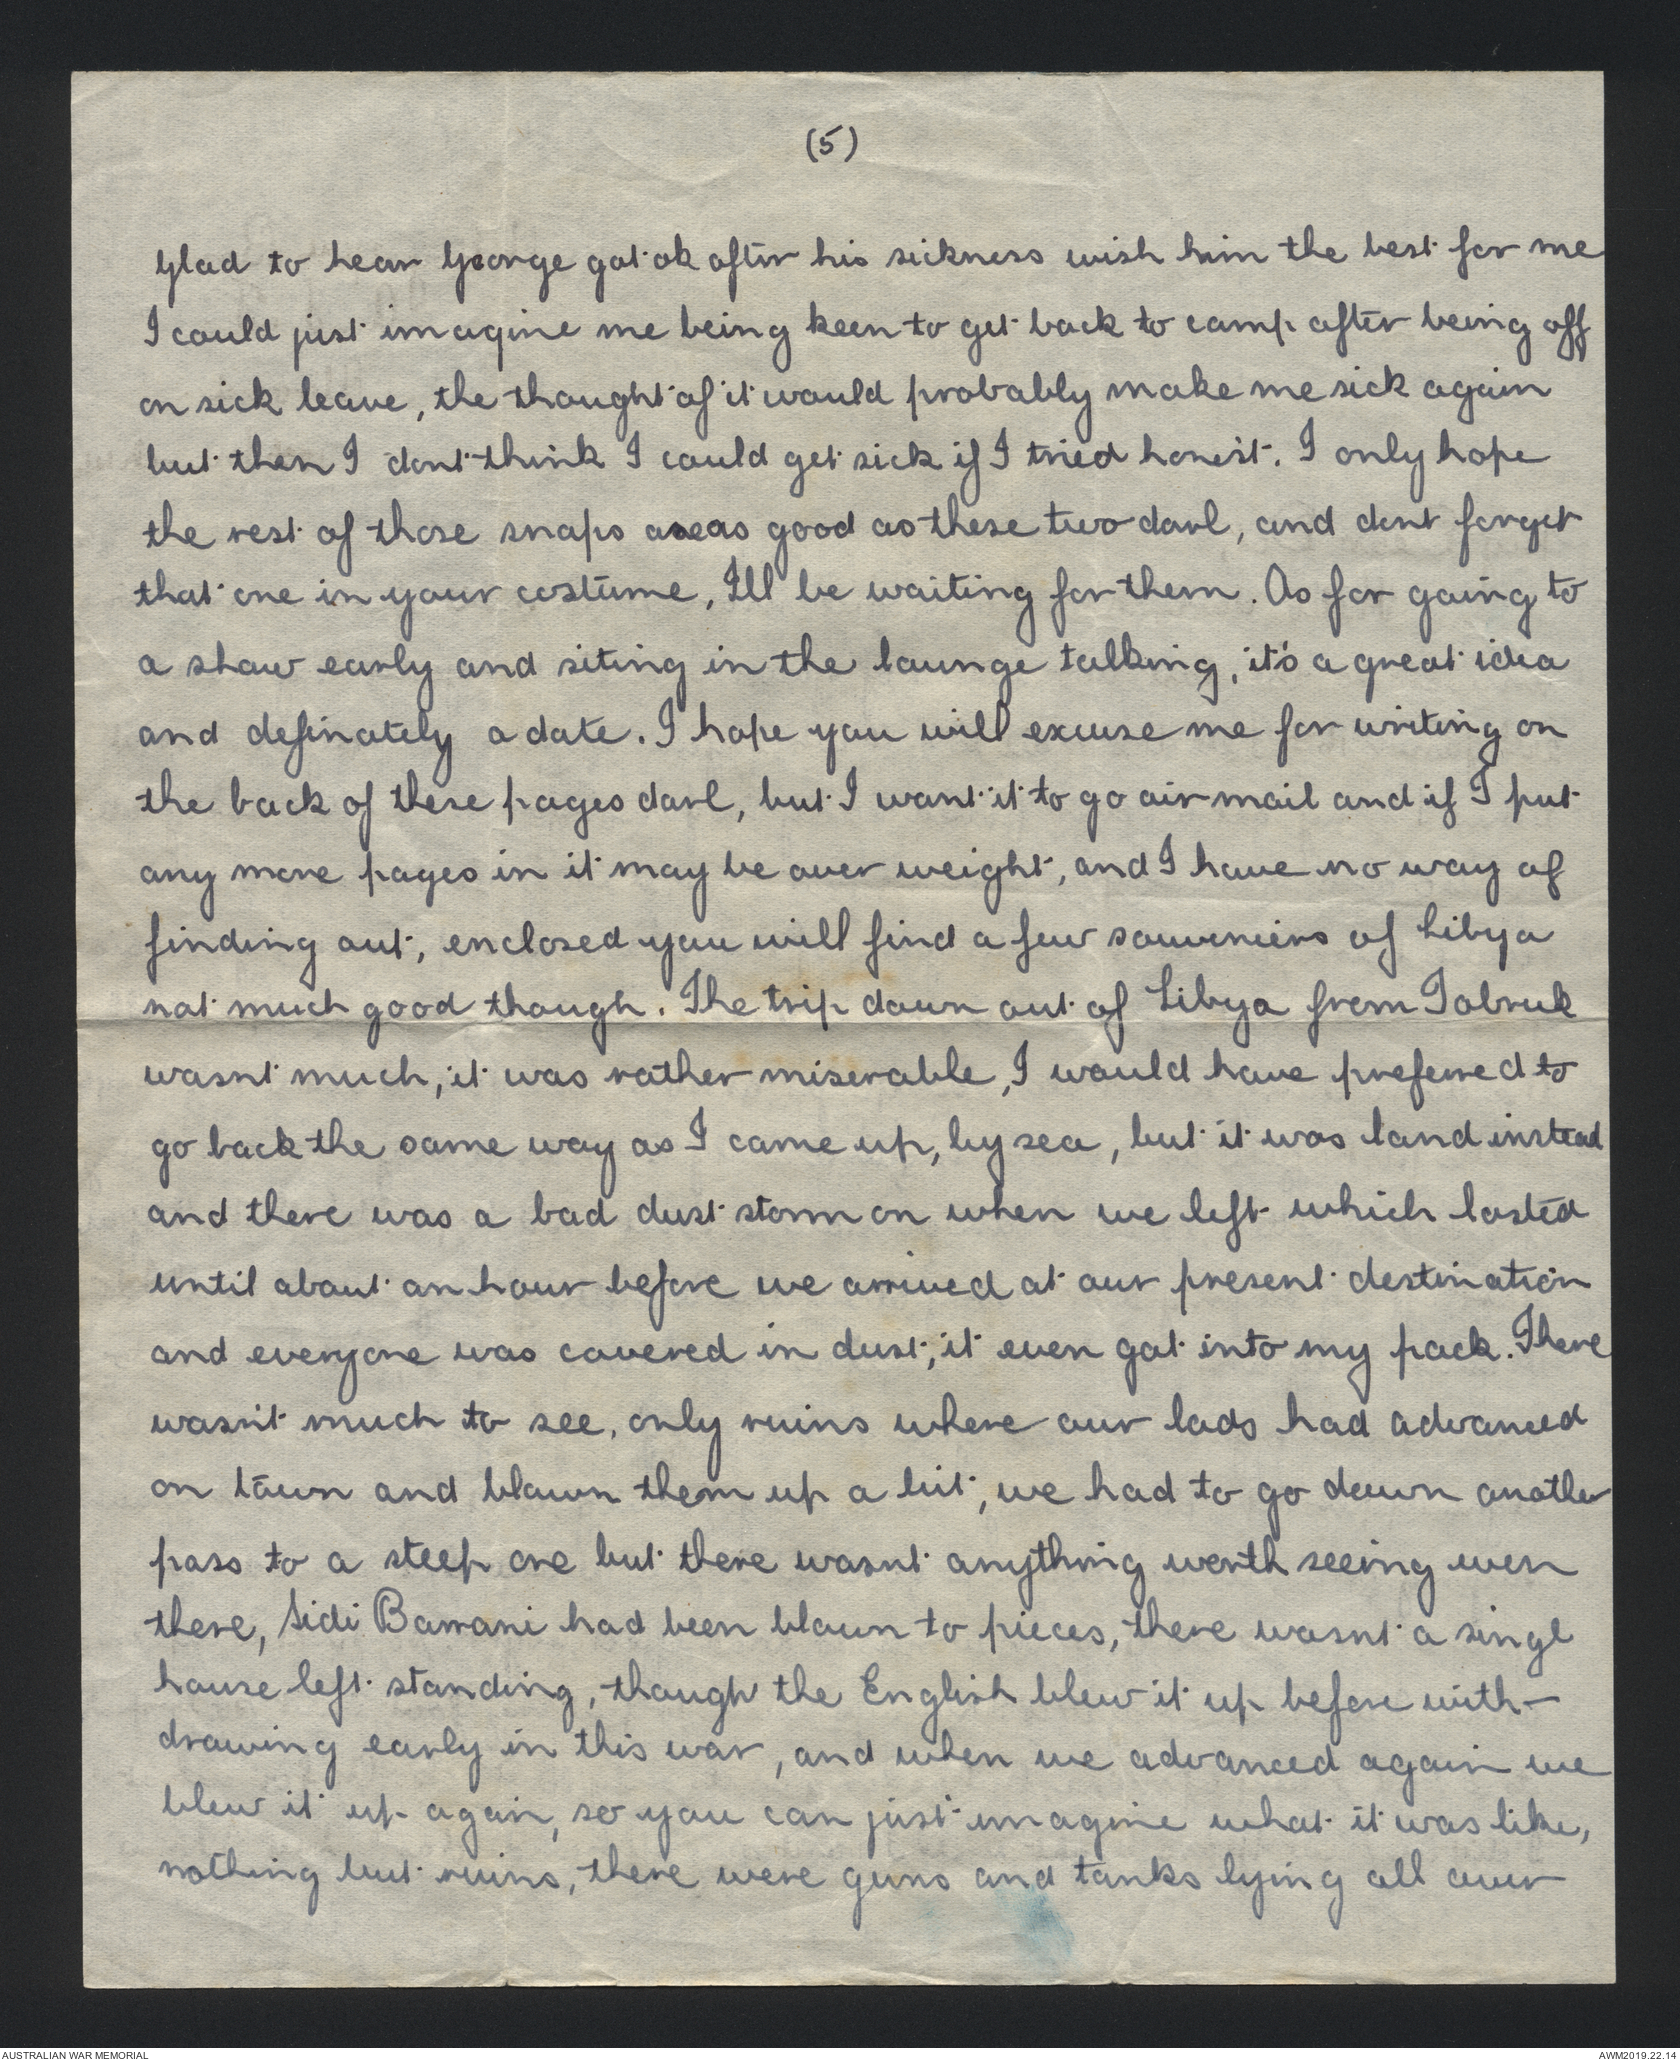 (5)
Glad to hear George got ok after his sickness wish him the best for me
I could just imagine me being keen to get back to camp after being off
on sick leave, the thought of it would probably make me sick again
but then I dont think I could get sick if I tried honest. I only hope
the rest of those snaps are as good as these two darl, and dont forget
that one in your costume, I'll be waiting for them. As for going to
a show early and siting in the lounge talking, it's a great idea
and definately a date. I hope you will excuse me for writing on
the back of these pages darl, but I want it to go air mail and if I put
any more pages in it may be over weight, and I have no way of
finding out, enclosed you will find a few souveniers of Libya
not much good though. The trip down out of Libya from Tobruk
wasnt much, it was rather miserable, I would have prefered to
go back the same way as I came up, by sea, but it was land instead
and there was a bad dust storm on when we left which lasted
until about an hour before we arrived at our present destination
and everyone was covered in dust, it even got into my pack. There
wasn't much to see, only ruins where our lads had advanced
on town and blown them up a bit, we had to go down another
pass to a steep one but there wasnt anything worth seeing even
there, Sidi Barrani had been blown to pieces, there wasnt a singl
house left standing, though the English blew it up before with-
drawing early in this war, and when we advanced again we
blew it up again, so you can just imagine what it was like,
nothing but ruins, there were guns and tanks lying all over
AUSTRALIAN WAR MEMORIAL
AWM2019.22.14